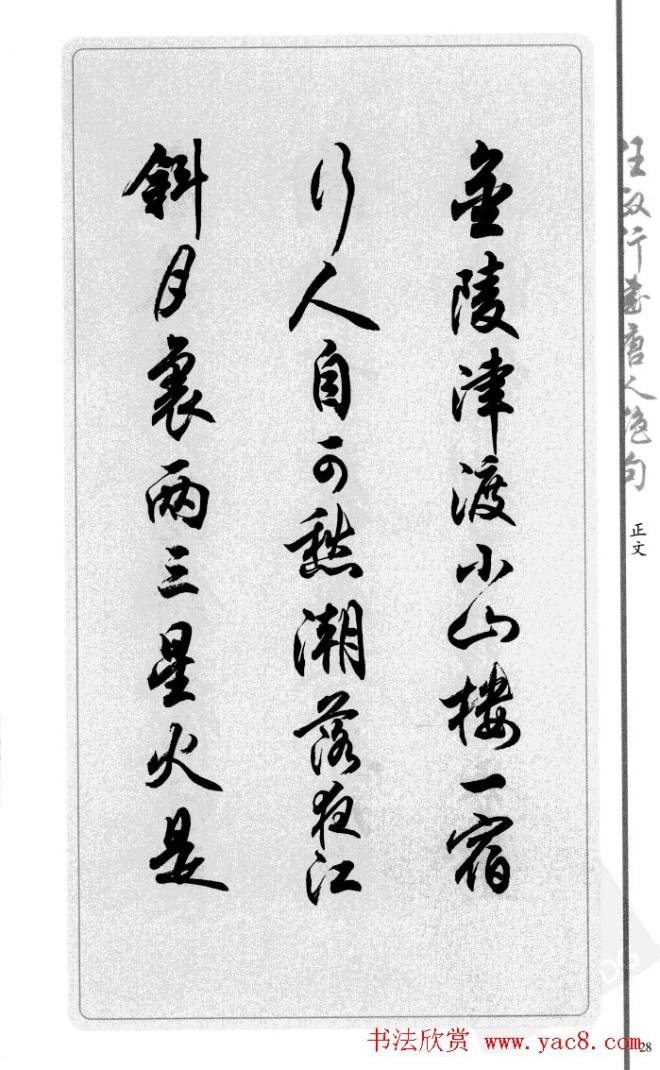 金陵津渡小山樓一宿
行人自可愁潮落夜江
斜月裏兩三星火是
任政行書唐人絕句
正文
书法欣赏 www.yac8.com
28
DG